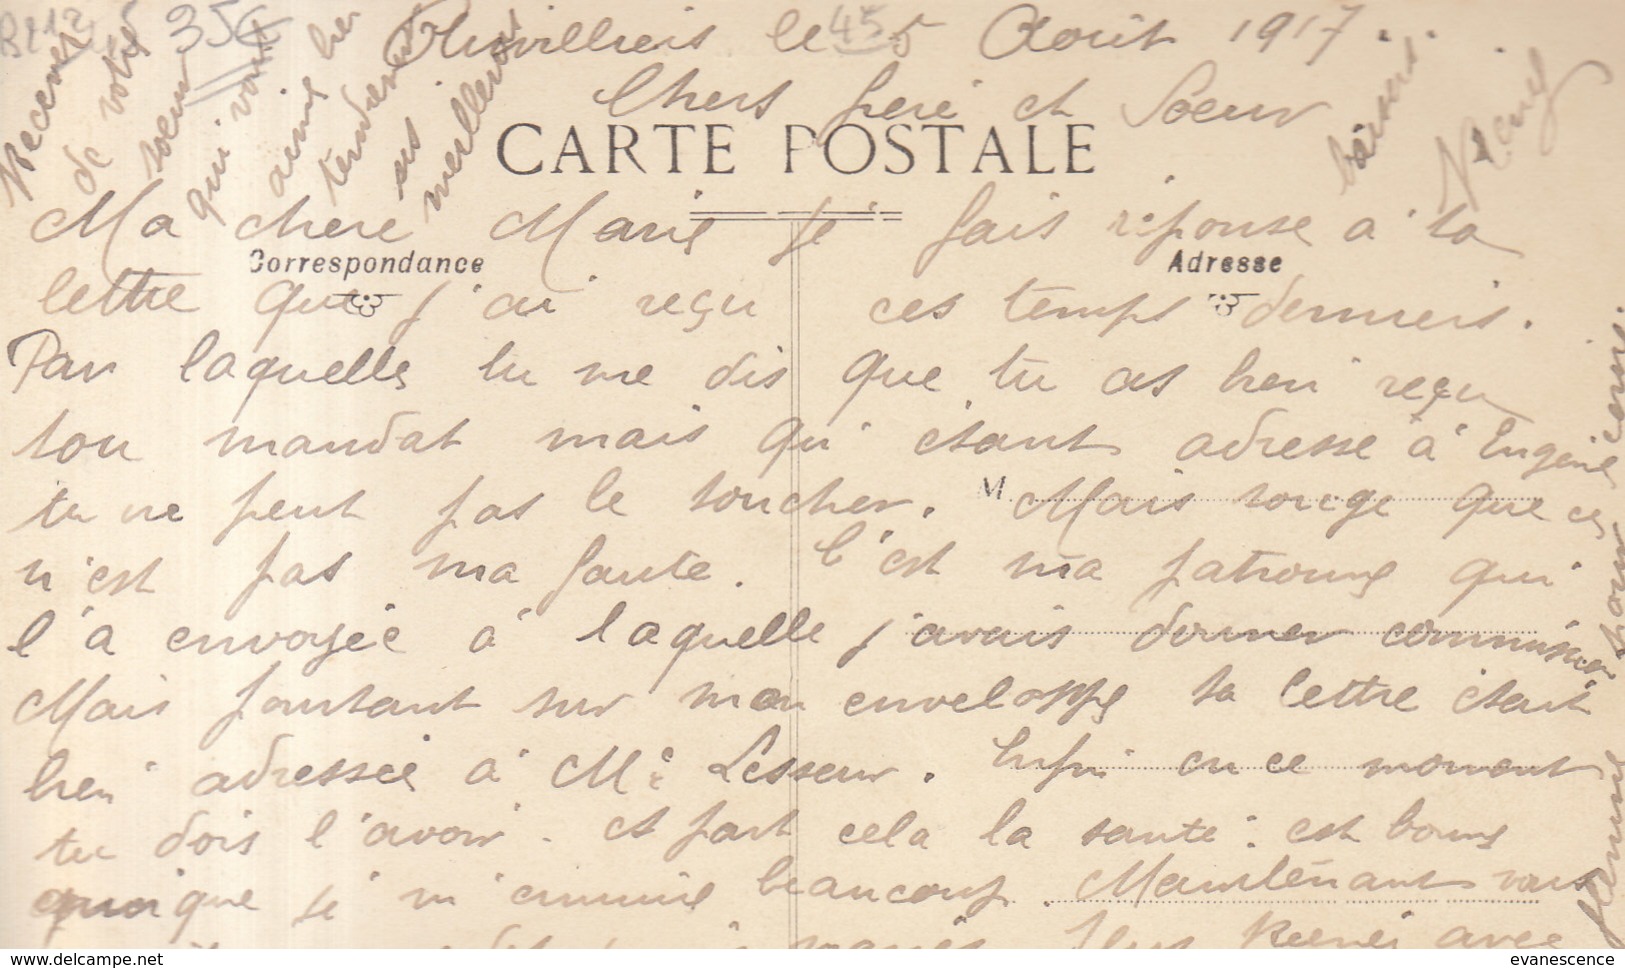 35€
Aubervilliers le 5 Août 1917.
Chers frere et Soeur
CARTE POSTALE
Ma chere Marie je fais réponse a ta
Correspondance
Adresse
lettre que j'ai reçu ces temps derniers.
Par laquelle tu me dis que tu as bien reçu
ton mandat mais qui étant adresse à Eugène
tu ne peut pas le toucher. Mais songe que ce
M.
n'est pas ma faute. C'est ma patronne qui
l'a envoyée à laquelle j'avais donner commission
Mais pourtant sur mon enveloppe ta lettre étant
bien adressée à Mr Lesseur. Enfin en ce moment
tu dois l'avoir. et part cela la santé est bonne
quoique je m'ennuie beaucoup. Maintenant vous
plus avec
Recevez
de votre
soeur
qui vous
aime bien
tendrement
ses
meilleurs
baisers
delcampe.net
evanescence